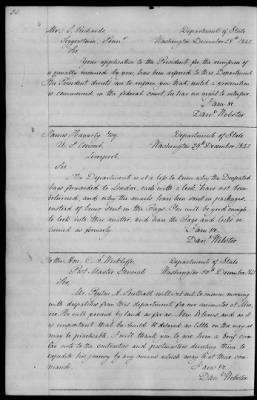 Mr. J. Richards. Department of State
Washington December 28th 1842
Sir,
Your application to the President for the remission of
a penalty incurred by you, has been referred to this Department
The President directs me to inform you that until a prosecution
is commenced in the federal court, he has no right to interfere.
I am &c
Danl Webster
James Haggarty Esq. Department of State
U. S. Consul, Washington 29th December 1842
Liverpool.
Sir
The Department is at a loss to know why the Despatch
bags forwarded to London, each with a lock, have not been
returned, and why the mails have been sent in packages,
instead of being sent in the Bags. You will be good enough
to look into this matter, and have the Bags and locks re-
turned as formerly.
I am &c
Danl Webster
To the Hon. C. A. Wickliffe, Department of State
Post Master General Washington 30th December 1842
Sir,
Mr. Southall will set out to morrow morning
with despatches from this department for our minister at Mex-
ico. He will proceed by land as far as New Orleans, and as it
is important that he should be delayed as little on the way as
may be practicable, I will thank you to give him a brief cir-
cular order to the contractors and postmasters directing them to
expedite his journey by any means which may be at their com-
mand.
I am &c
Danl Webster